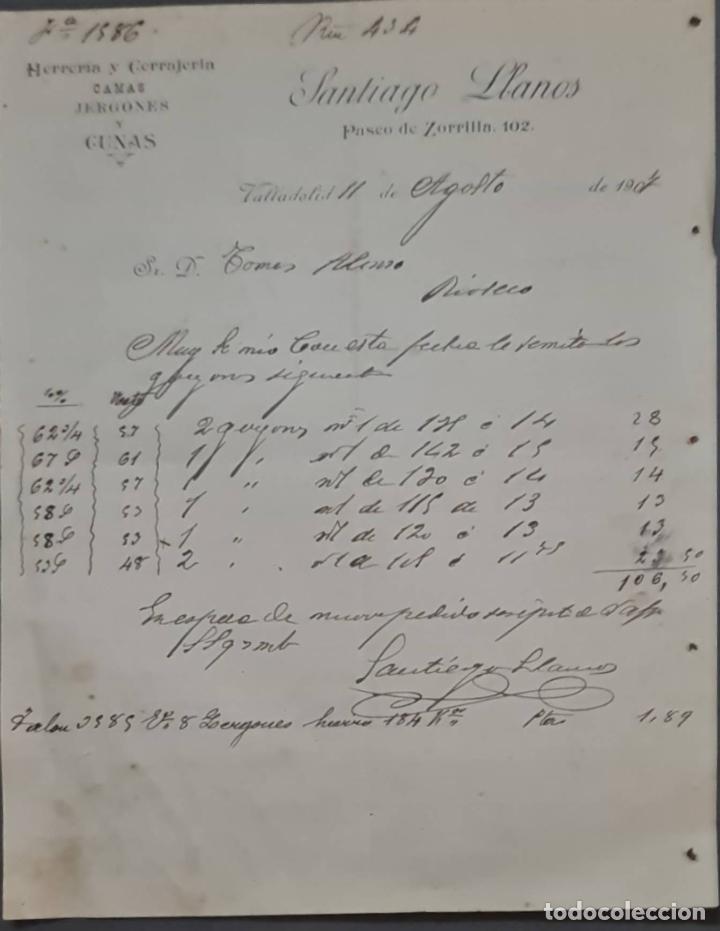 Fª 1586. Rm 434
Herrería y Cerrajería
CAMAS
JERGONES
Y
CUNAS
Santiago Llanos
Paseo de Zorrilla, 102.
Valladolid 11 de Agosto de 1907
Sr. D. Tomas Alonso
Rioseco
Muy Sr mio Con esta fecha le remito los
siguient
62 3/4 57 2 gergones nº 1 de 135 á 14 28
67 61 1 " nº 1 de 142 á 15 15
62 3/4 57 1 " nº 1 de 130 á 14 14
586 53 1 " nº 1 de 115 de 13 13
586 53 1 " nº 1 de 120 á 13 13
48 2 " á 11 75 23 50
106,50
En espera de nuevo pedido
Santiago Llanos
Talon 3585 8 Jergones hierro 184 Kºs Ptas 1,89
todocoleccion.net